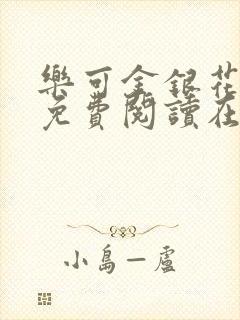 樂可金銀花
免費閱讀在
小島一盧